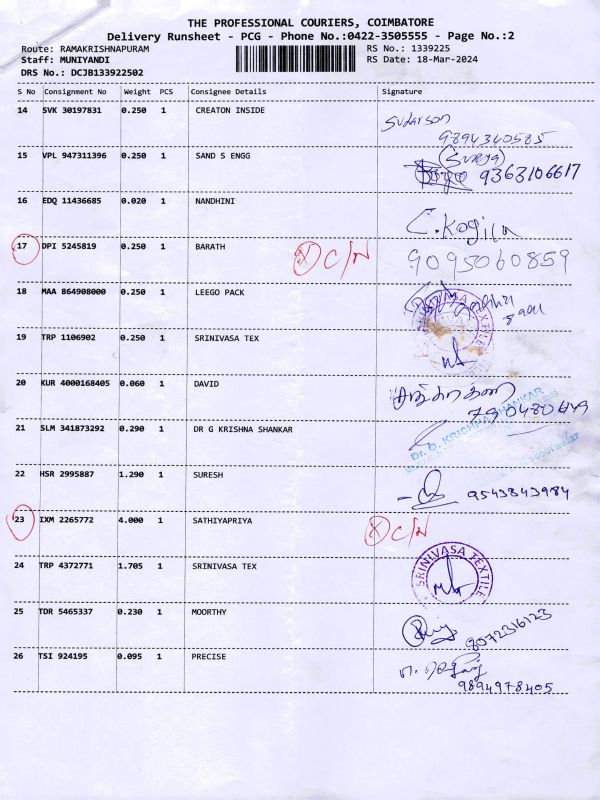 THE PROFESSIONAL COURIERS, COIMBATORE
Delivery Runsheet - PCG - Phone No.:0422-3505555 - Page No.:2
Route: RAMAKRISHNAPURAM RS No.: 1339225
Staff: MUNIYANDI RS Date: 18-Mar-2024
DRS No.: DCJB133922502
S No Consignment No Weight PCS Consignee Details Signature
14 SVK 30197831 0.250 1 CREATON INSIDE
Sudarson
9894340585
15 VPL 947311396 0.250 1 SAND S ENGG
(Surya)
9363106617
16 EDQ 11436685 0.020 1 NANDHINI
C. Kogila
17 DPI 5245819 0.250 1 BARATH C/N 9095060859
18 MAA 864908000 0.250 1 LEEGO PACK
19 TRP 1106902 0.250 1 SRINIVASA TEX
20 KUR 4000168405 0.060 1 DAVID
21 SLM 341873292 0.290 1 DR G KRISHNA SHANKAR
Dr. G. KRISHNA SHANKAR
22 HSR 2995887 1.290 1 SURESH
9543843984
23 IXM 2265772 4.000 1 SATHIYAPRIYA C/N
24 TRP 4372771 1.705 1 SRINIVASA TEX
SRINIVASA TEXTILE
25 TDR 5465337 0.230 1 MOORTHY
8072316123
26 TSI 924195 0.095 1 PRECISE
9894978405